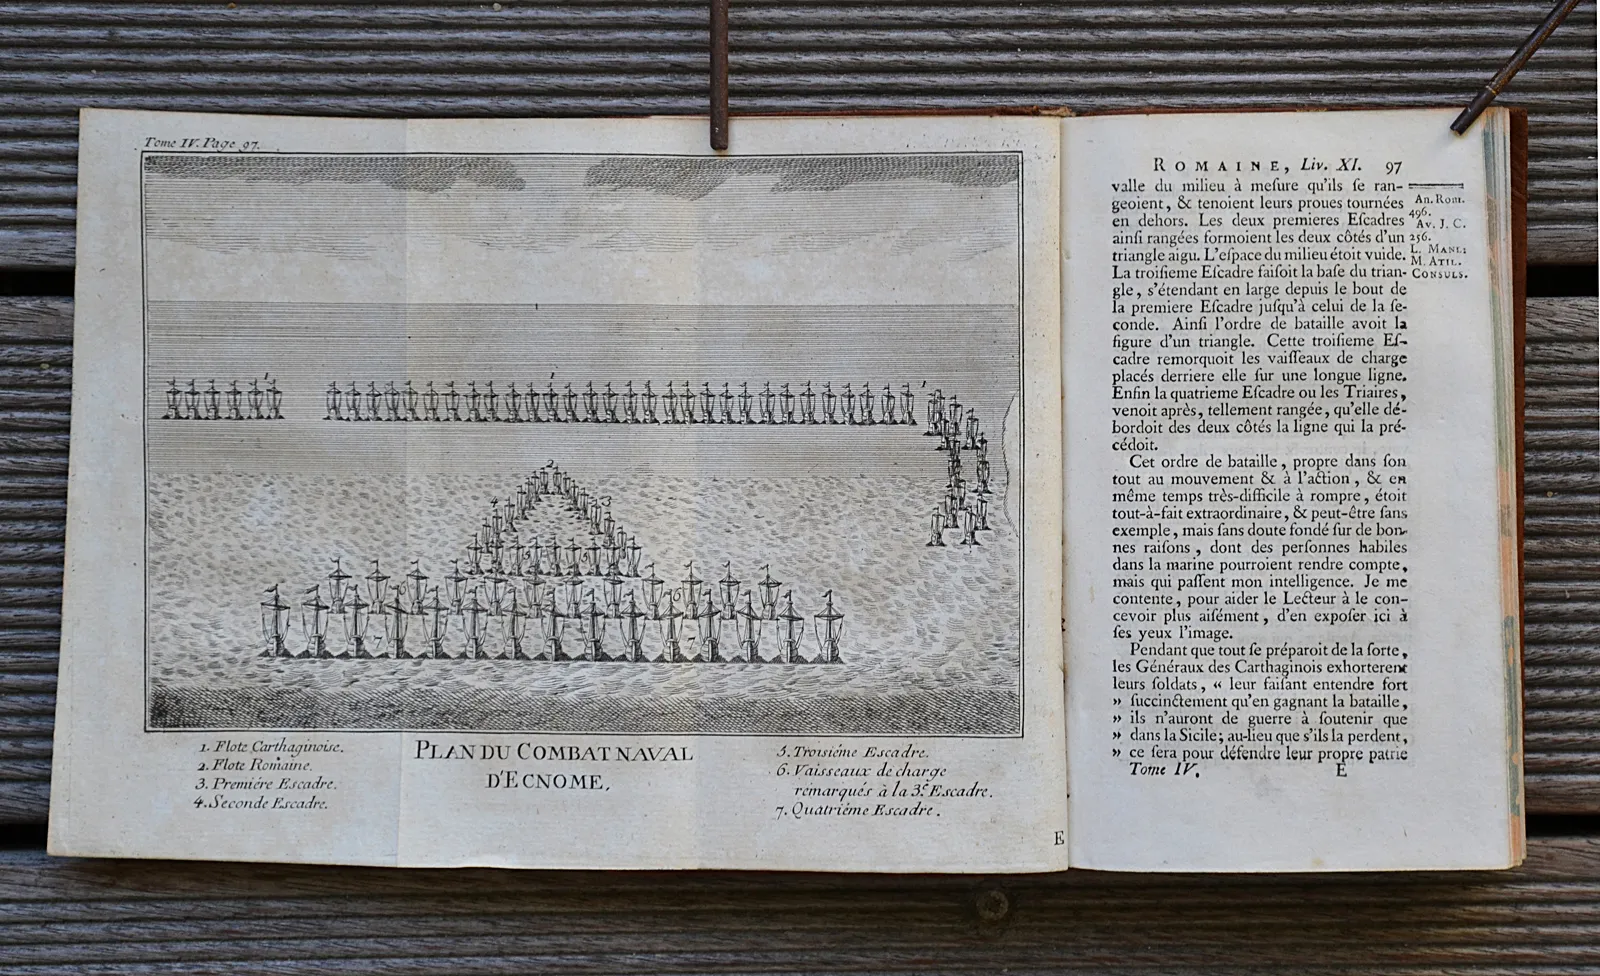 Tome IV. Page 97.
1
1
1
2
4
3
5
5
6
6
7
7
1. Flote Carthaginoise.
2. Flote Romaine.
3. Premiére Escadre.
4. Seconde Escadre.
PLAN DU COMBAT NAVAL
D'ECNOME,
5. Troisiéme Escadre.
6. Vaisseaux de charge
remarqués à la 3.e Escadre.
7. Quatriéme Escadre.
E
ROMAINE, Liv. XI. 97
valle du milieu à meſure qu'ils ſe ran-
geoient, & tenoient leurs proues tournées
en dehors. Les deux premieres Eſcadres
ainſi rangées formoient les deux côtés d'un
triangle aigu. L'eſpace du milieu étoit vuide.
La troiſieme Eſcadre faiſoit la baſe du trian-
gle, s'étendant en large depuis le bout de
la premiere Eſcadre juſqu'à celui de la ſe-
conde. Ainſi l'ordre de bataille avoit la
figure d'un triangle. Cette troiſieme Eſ-
cadre remorquoit les vaiſſeaux de charge
placés derriere elle ſur une longue ligne.
Enfin la quatrieme Eſcadre ou les Triaires,
venoit après, tellement rangée, qu'elle dé-
bordoit des deux côtés la ligne qui la pré-
cédoit.
Cet ordre de bataille, propre dans ſon
tout au mouvement & à l'action, & en
même temps très-difficile à rompre, étoit
tout-à-fait extraordinaire, & peut-être ſans
exemple, mais ſans doute fondé ſur de bon-
nes raiſons, dont des perſonnes habiles
dans la marine pourroient rendre compte,
mais qui paſſent mon intelligence. Je me
contente, pour aider le Lecteur à le con-
cevoir plus aiſément, d'en expoſer ici à
ſes yeux l'image.
Pendant que tout ſe préparoit de la ſorte,
les Généraux des Carthaginois exhorterent
leurs ſoldats, « leur faiſant entendre fort
» ſuccinctement qu'en gagnant la bataille,
» ils n'auront de guerre à ſoutenir que
» dans la Sicile; au-lieu que s'ils la perdent,
» ce ſera pour défendre leur propre patrie
Tome IV. E
An. Rom.
496.
Av. J. C.
256.
L. MANL:
M. ATIL.
CONSULS.